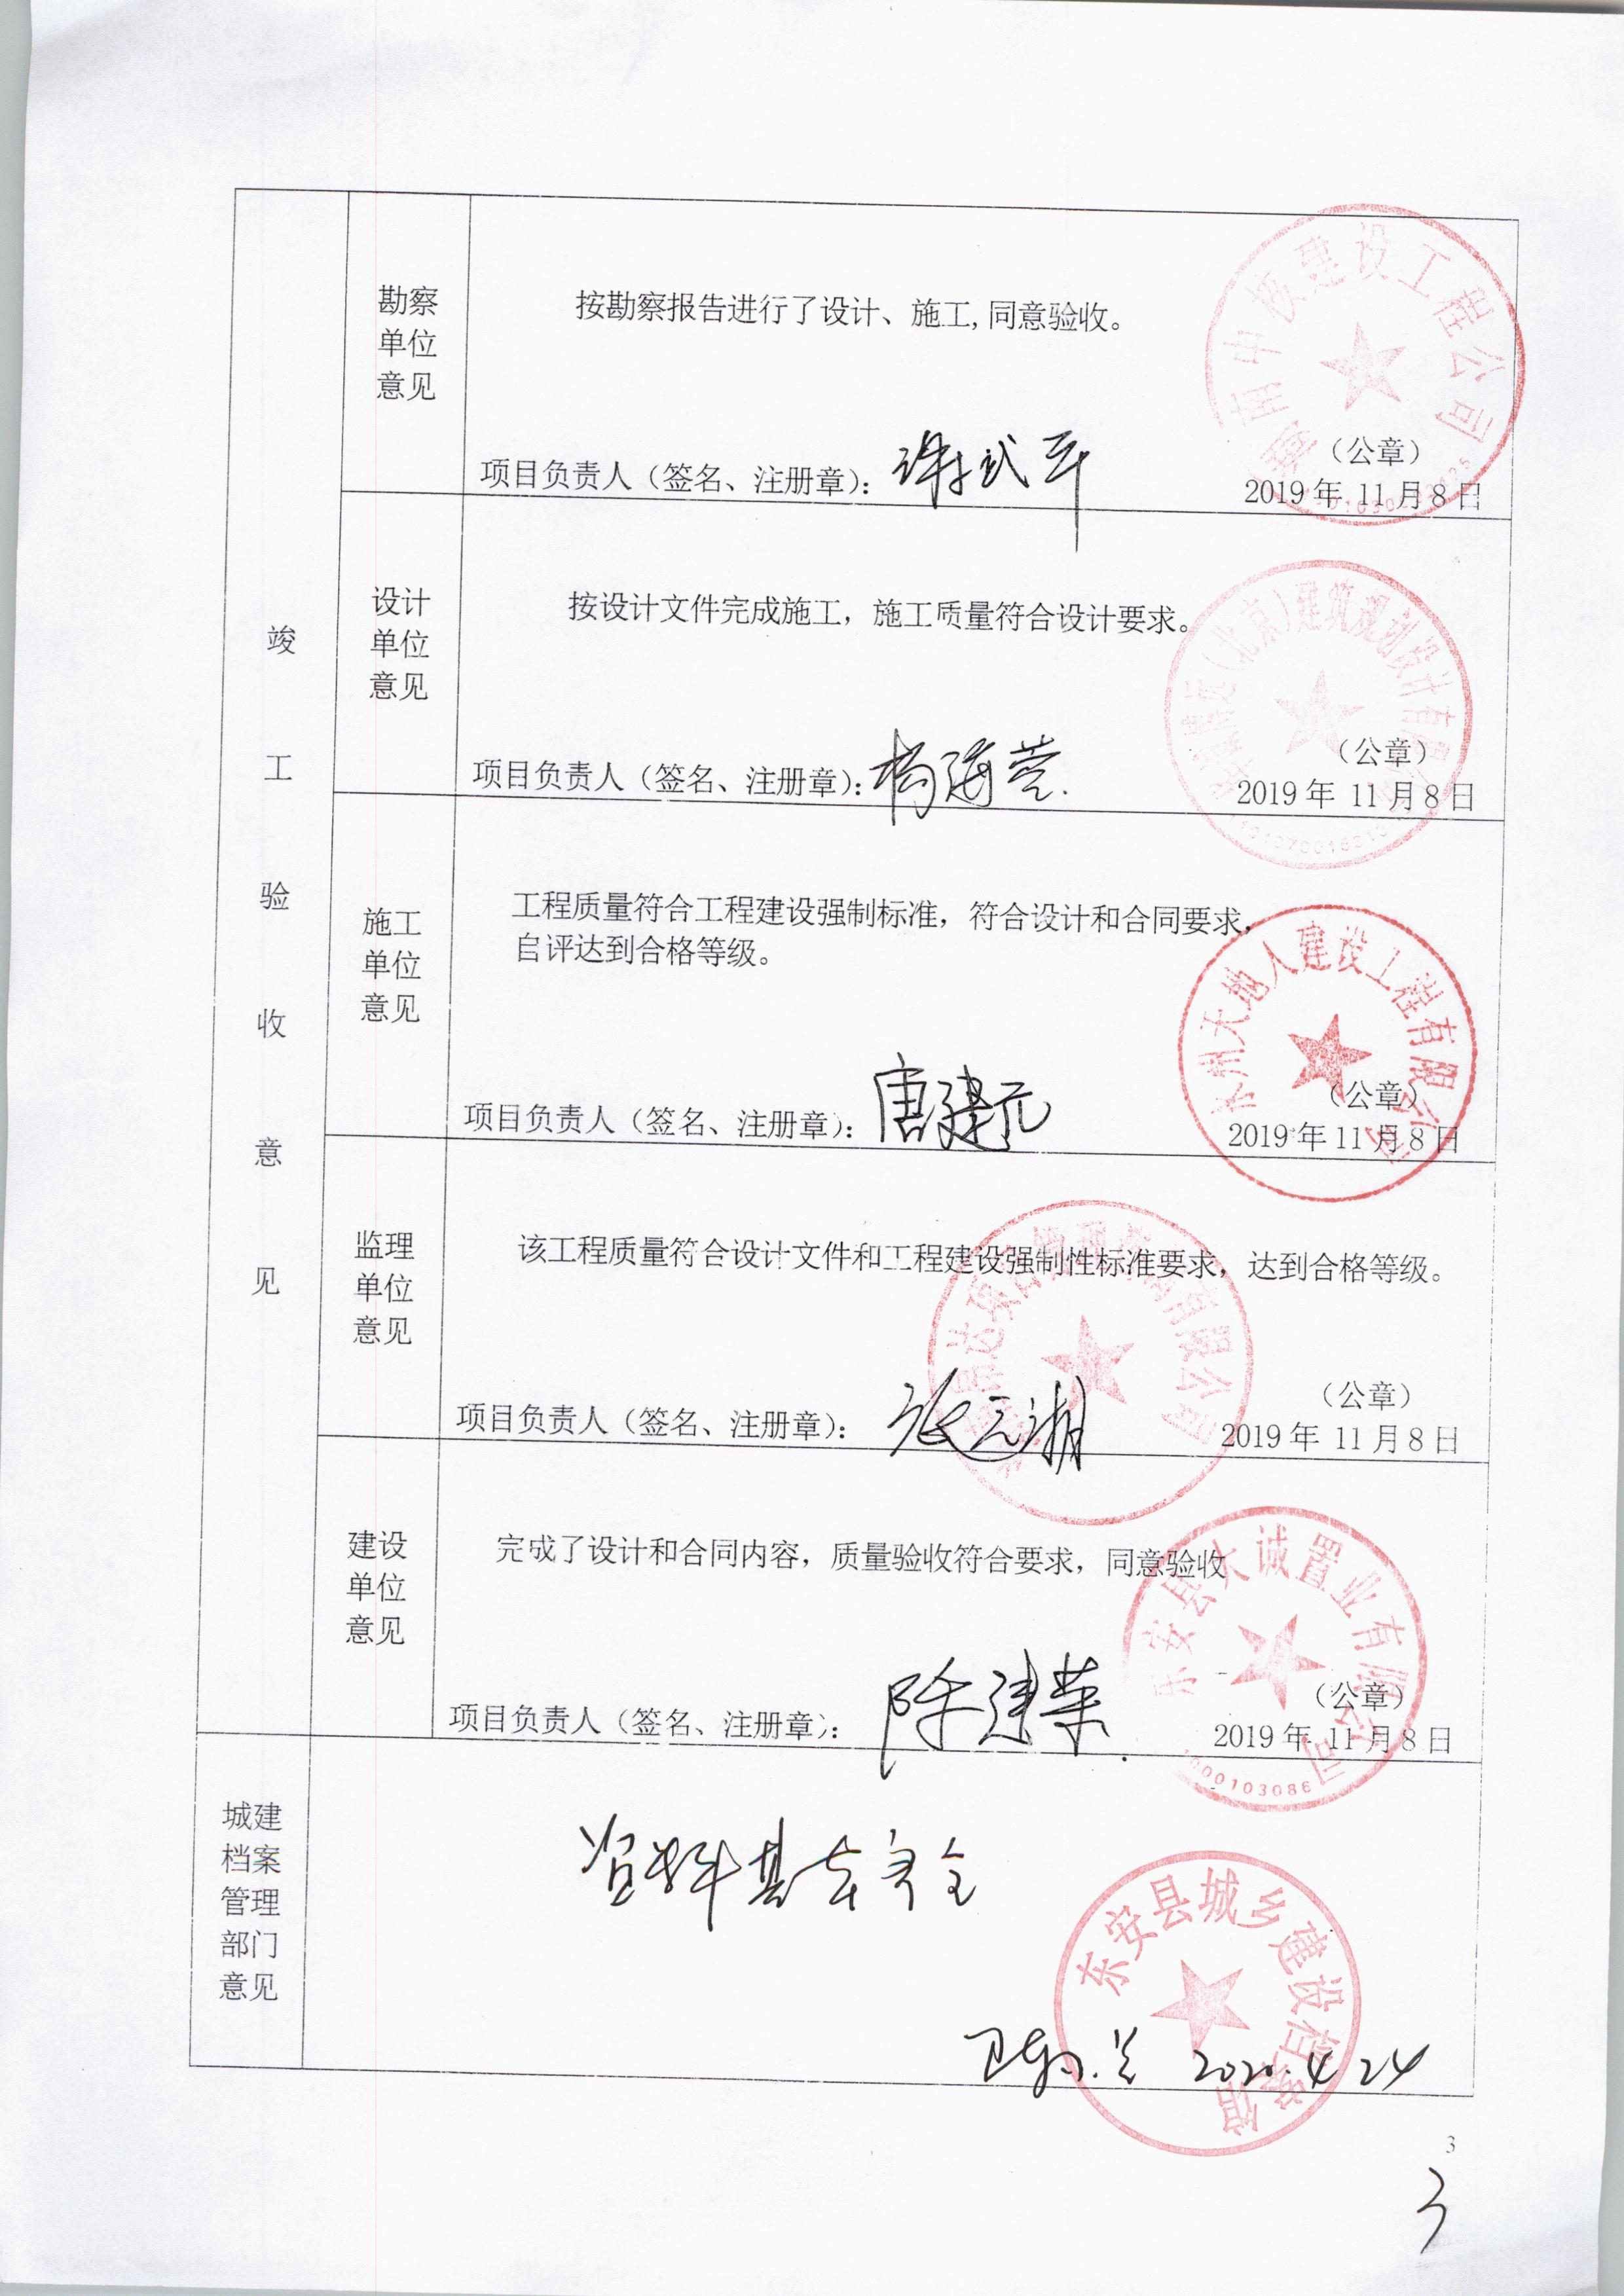 竣工验收意见
勘察
单位
意见
按勘察报告进行了设计、施工,同意验收。
项目负责人（签名、注册章）：
湖南中核建设工程公司
（公章）
2019年 11月8日
设计
单位
意见
按设计文件完成施工，施工质量符合设计要求。
项目负责人（签名、注册章）：杨海莹
（北京）建筑规划设计有
（公章）
2019年 11月8日
施工
单位
意见
工程质量符合工程建设强制标准，符合设计和合同要求，
自评达到合格等级。
项目负责人（签名、注册章）：唐建元
永州天地人建设工程有限公司
（公章）
2019年11月8日
监理
单位
意见
该工程质量符合设计文件和工程建设强制性标准要求，达到合格等级。
项目负责人（签名、注册章）：张元湘
有限公司
（公章）
2019年 11月8日
建设
单位
意见
完成了设计和合同内容，质量验收符合要求，同意验收
项目负责人（签名、注册章）：陈建荣
东安县大诚置业有限公司
（公章）
2019年 11月8日
城建
档案
管理
部门
意见
资料基本齐全
东安县城乡建设档案馆
2020.4.24
3
3